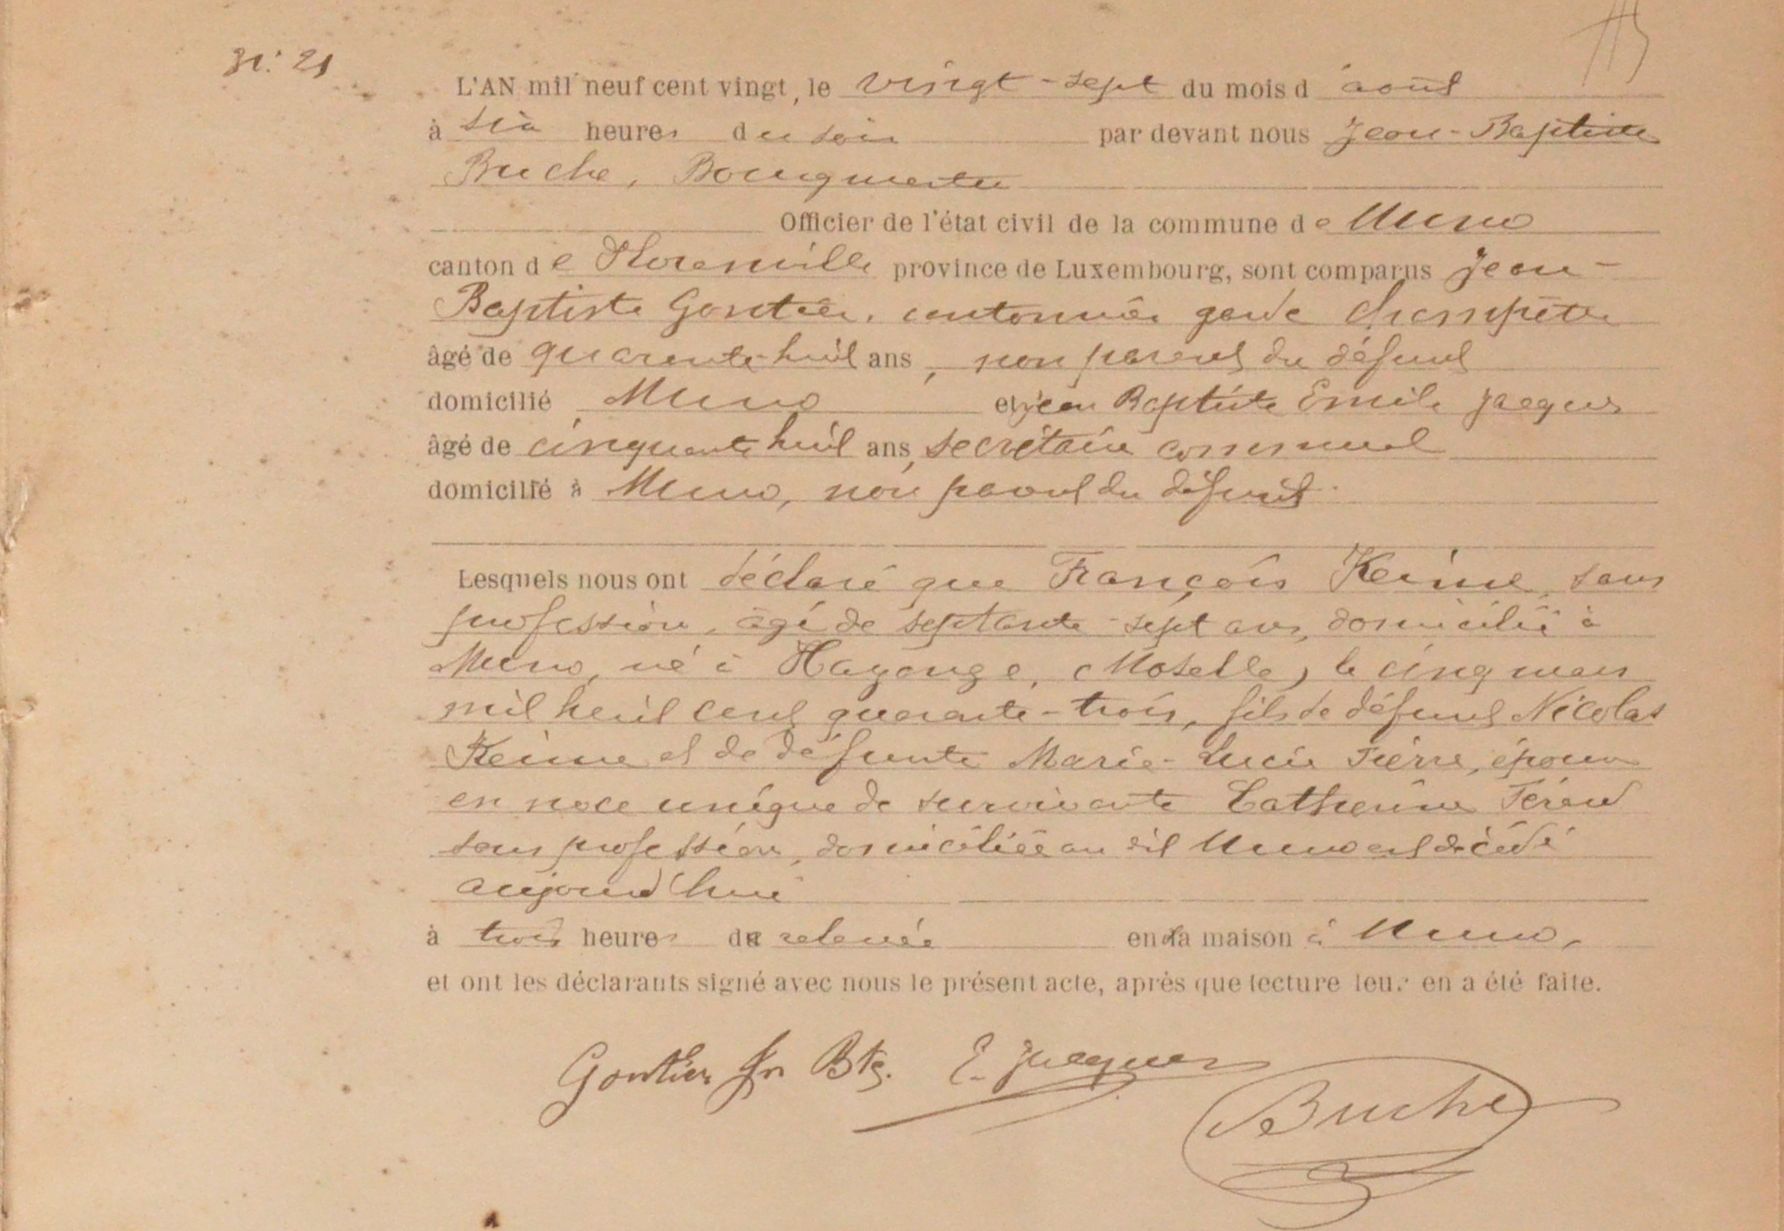 N: 21
L'AN mil neuf cent vingt, le vingt-sept du mois d'août
à six heures du soir par devant nous Jean-Baptiste
Buche, Bourgmestre
Officier de l'état civil de la commune de Muno
canton de Florenville province de Luxembourg, sont comparus Jean-
Baptiste Gontier, cantonnier garde champêtre
âgé de quarante-huit ans, non parent du défunt
domicilié Muno et Jean Baptiste Emile Jacques
âgé de cinquante huit ans, secrétaire communal
domicilié à Muno, non parent du défunt
Lesquels nous ont déclaré que François Keime, sans
profession, âgé de septante-sept ans, domicilié à
Muno, né à Hayange, (Moselle) le cinq mars
mil huit cent quarante-trois, fils de défunt Nicolas
Keime et de défunte Marie-Lucie, époux
en noce unique de survivante Catherine
sans profession, domiciliée au dit Muno est décédé
aujourd'hui
à trois heures de relevée en sa maison à Muno,
et ont les déclarants signé avec nous le présent acte, après que lecture leur en a été faite.
Gontier Jn Bte. E. Jacques
Buche